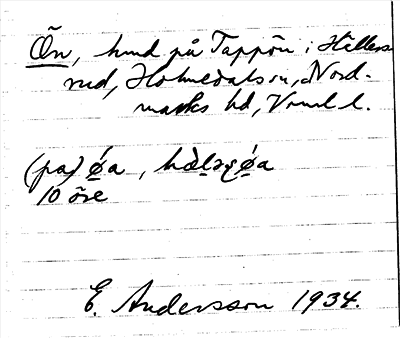 Ön, hmd på Tappön i Hillers
rud, Holmedals sn, Nord-
marks hd, Vrml l.
(pa) ǿa,
10 öre
E. Andersson 1934.